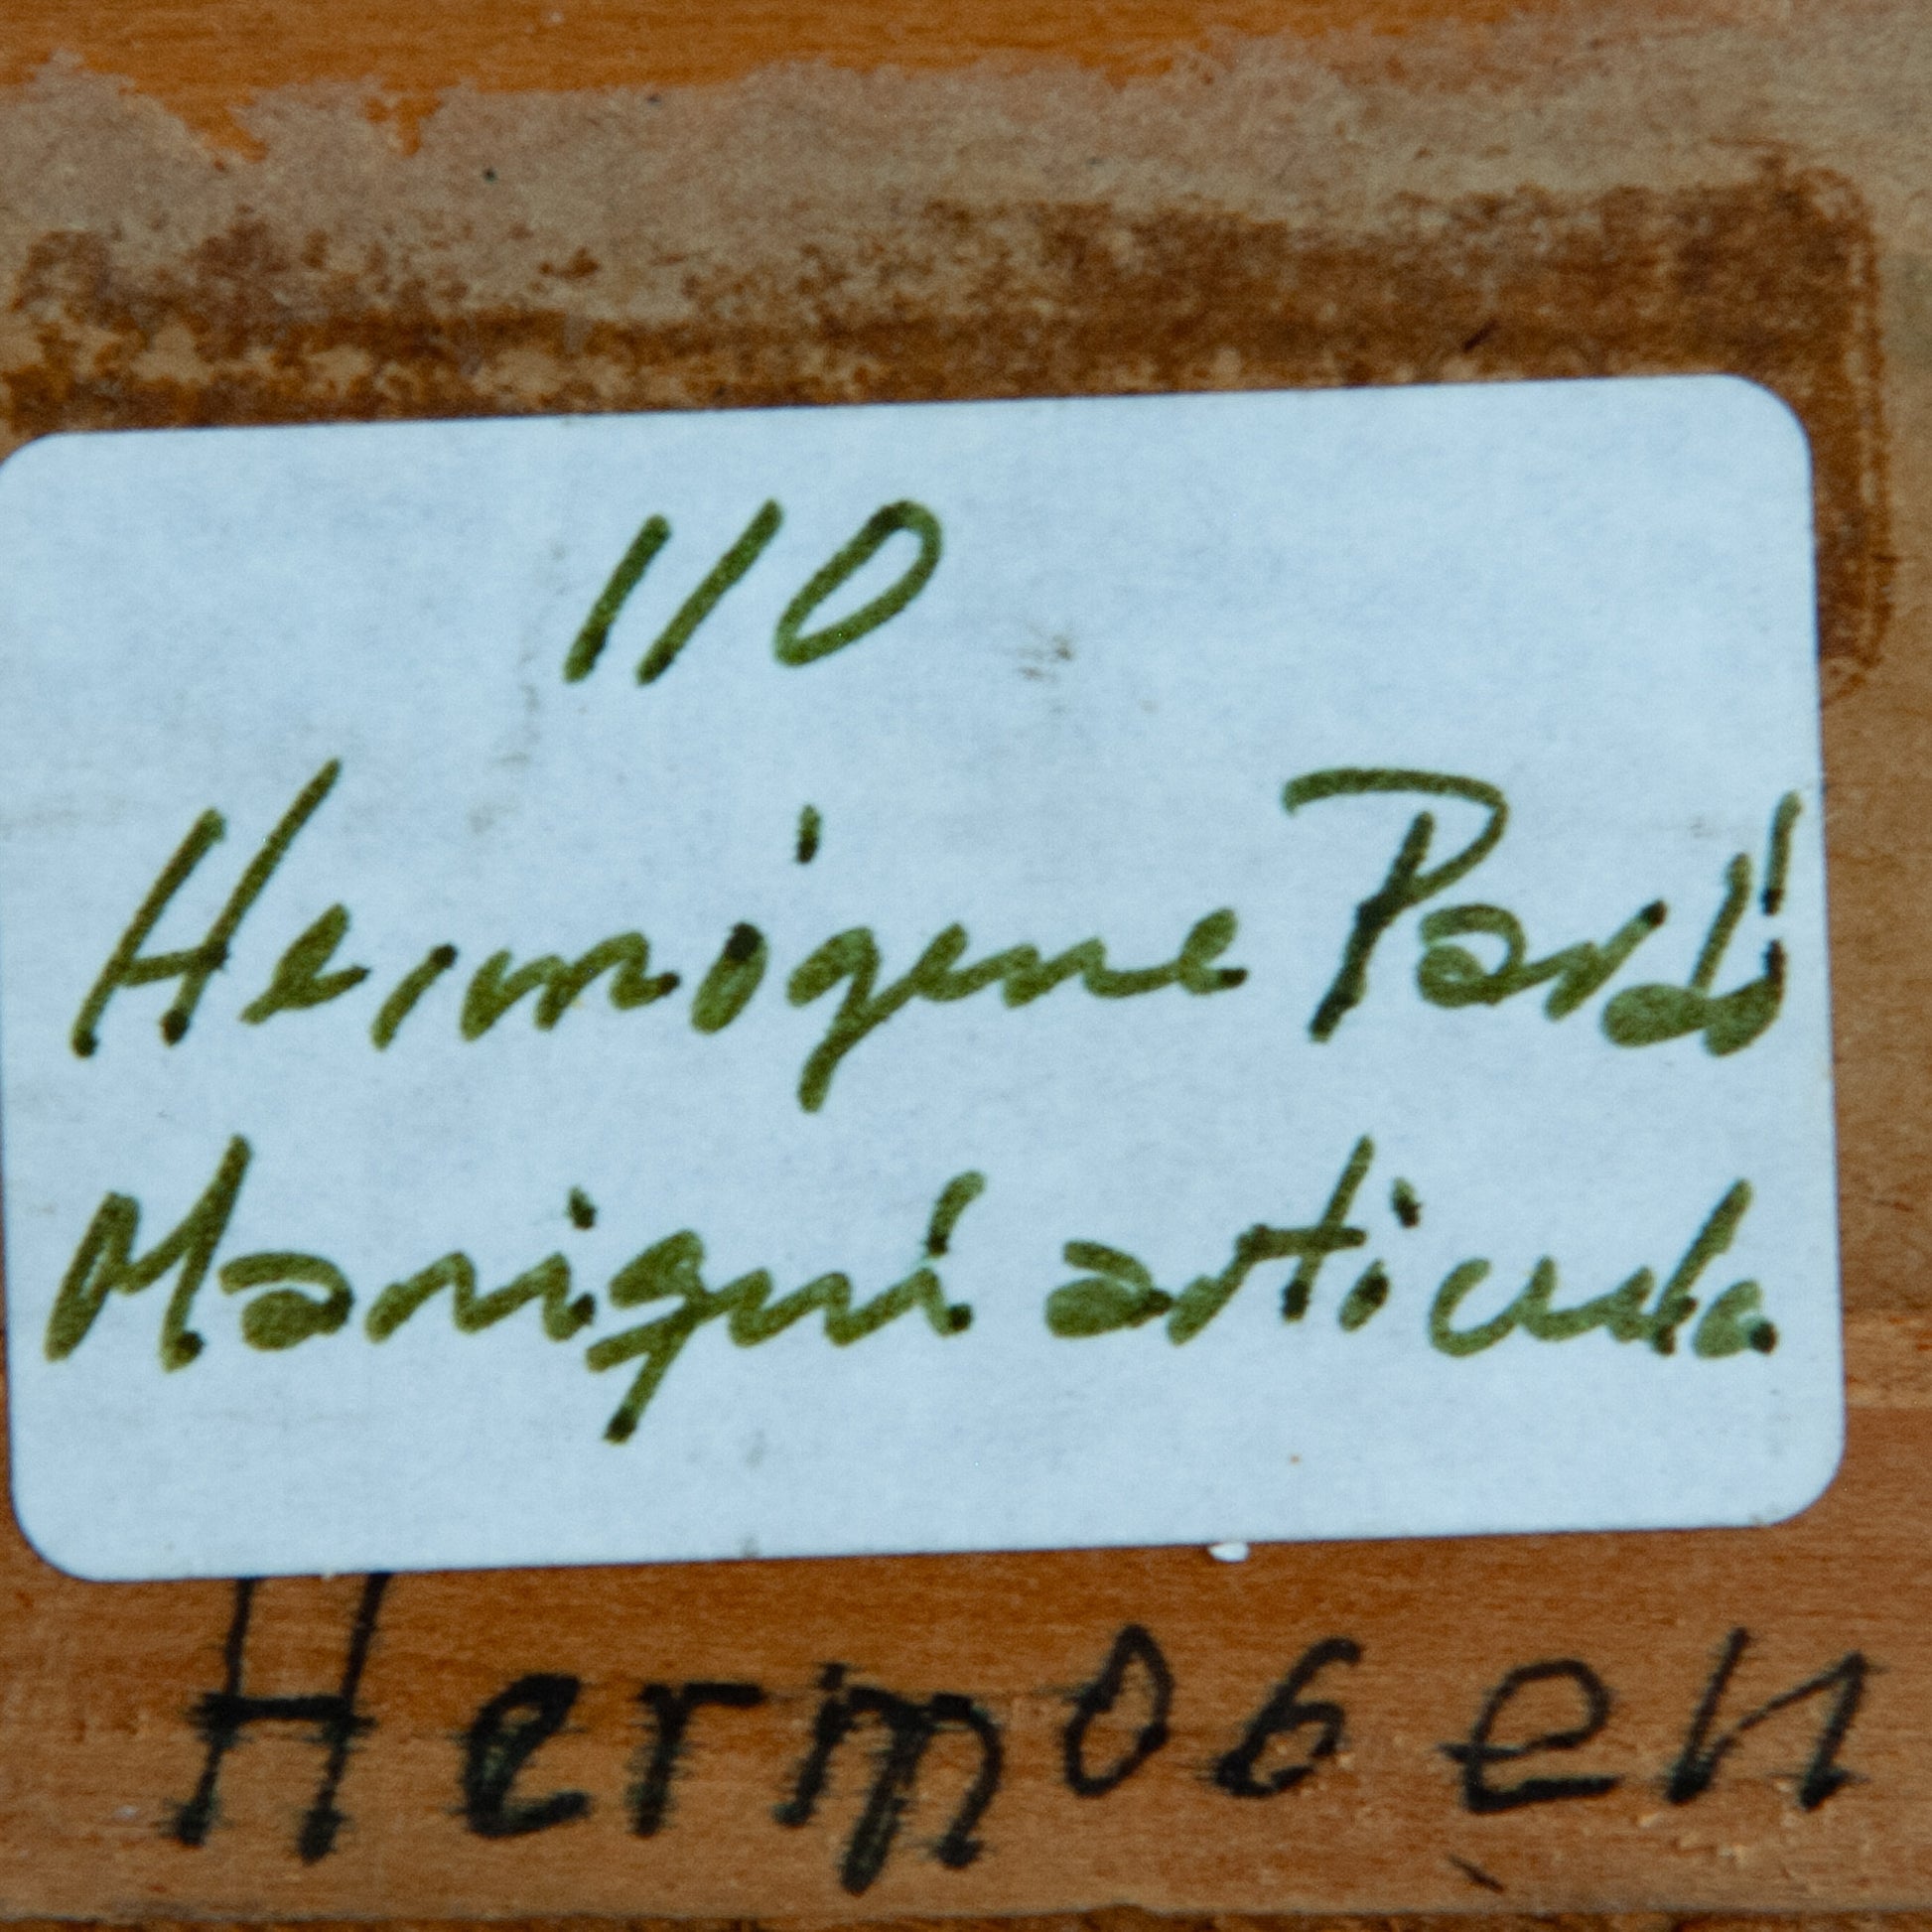 110
Hermógene Pardi
Maniquí articula
Hermogen